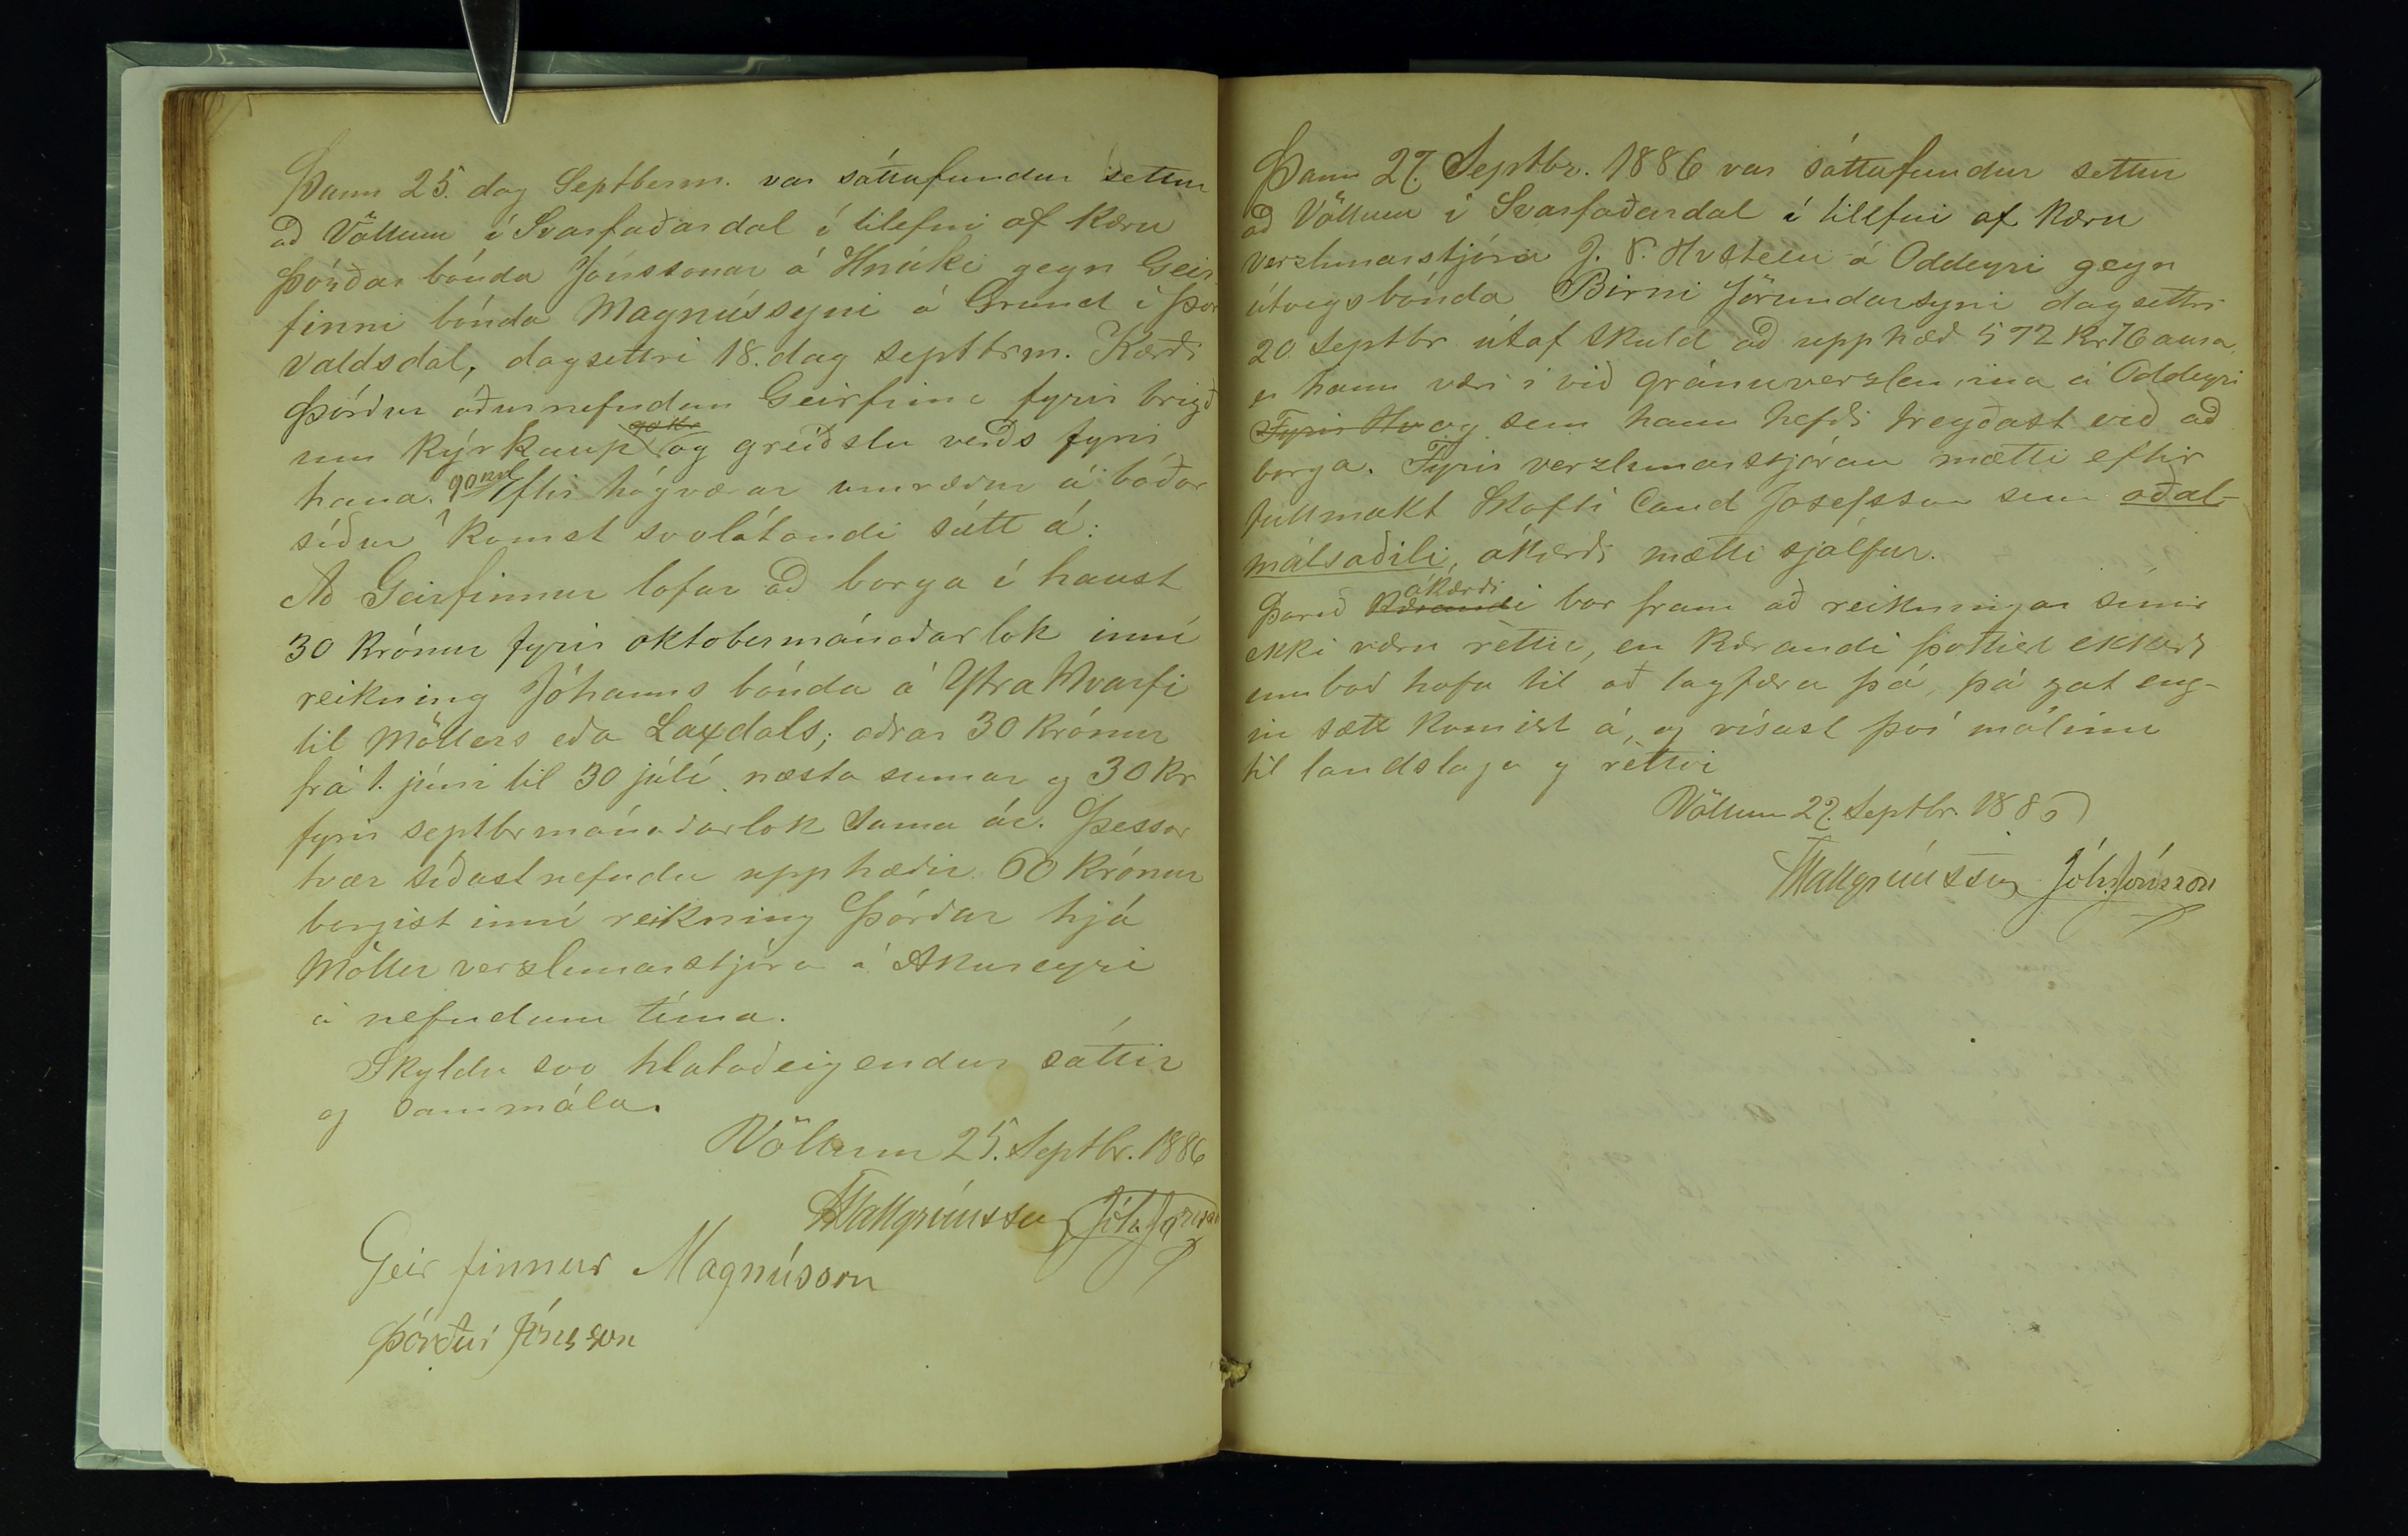 Þann 25. dag Septberm. var sáttafundur settur
að Völlum í Svarfaðardal í tilefni af kæru
Þórðar bónda Jónssonar á Hnúki gegn Geir
finni bónda Magnússyni á Grund í Þor
valdsdal, dagsettri 18. dag septbrm. Kærði
Þórður áðurnefndan Geirfinn fyrir brigð
um kýrkaup 90 kr og greiðslu verðs fyrir
hana. 90 kr Eftir hógværar umræður á báðar
síður komst svolátandi sátt á:
Að Geirfinnur lofar að borga í haust
30 krónur fyrir oktobermánaðarlok inní
reikning Jóhanns bónda á Ytra Hvarfi
til Möllers eða Laxdals; aðrar 30 krónur
frá 1. júní til 30 júlí næsta sumar og 30 kr
fyrir septbrmánaðarlok sama ár. Þessar
tvær síðastnefndu upphæðir 60 krónur
borgist inní reikning Þórðar hjá
Möller verzlunarstjóra á Akureyri
á nefndum tíma.
Skyldu svo hlutaðeigendur sáttir
og sammála.
Völlum 25. Septbr. 1886
Hallgrímsson Jóh. Jónsson
Geirfinnur Magnússon
Þórður Jónsson
Þann 27. Septbr. 1886 var sáttafundur settur
að Völlum í Svarfaðardal í tilefni af kæru
verzlunarstjóra J. V. Havsteen á Oddeyri gegn
útvegsbónda Birni Jörundarsyni dagsettri
20. Septbr útaf skuld að upphæð 572 kr 76 aura,
er hann væri í við gránuverzlunina á Oddeyri
Fyrir Hv og sem hann hefði tregðast við að
borga. Fyrir verzlunarstjórann mætti eftir
fullmakt Skafti Cand Josefsson sem aðal-
málsaðili, ákærði mætti sjálfur.
Þareð kærandi ákærði bar fram að reikningar sínir
ekki væru réttir, en kærandi þóttist ekkert
umboð hafa til að lagfæra þá, þá gat eng-
in sætt komist á, og vísast því málinu
til landslaga og réttar
Völlum 27. Septbr. 1886
Hallgrímsson Jóh. Jónsson